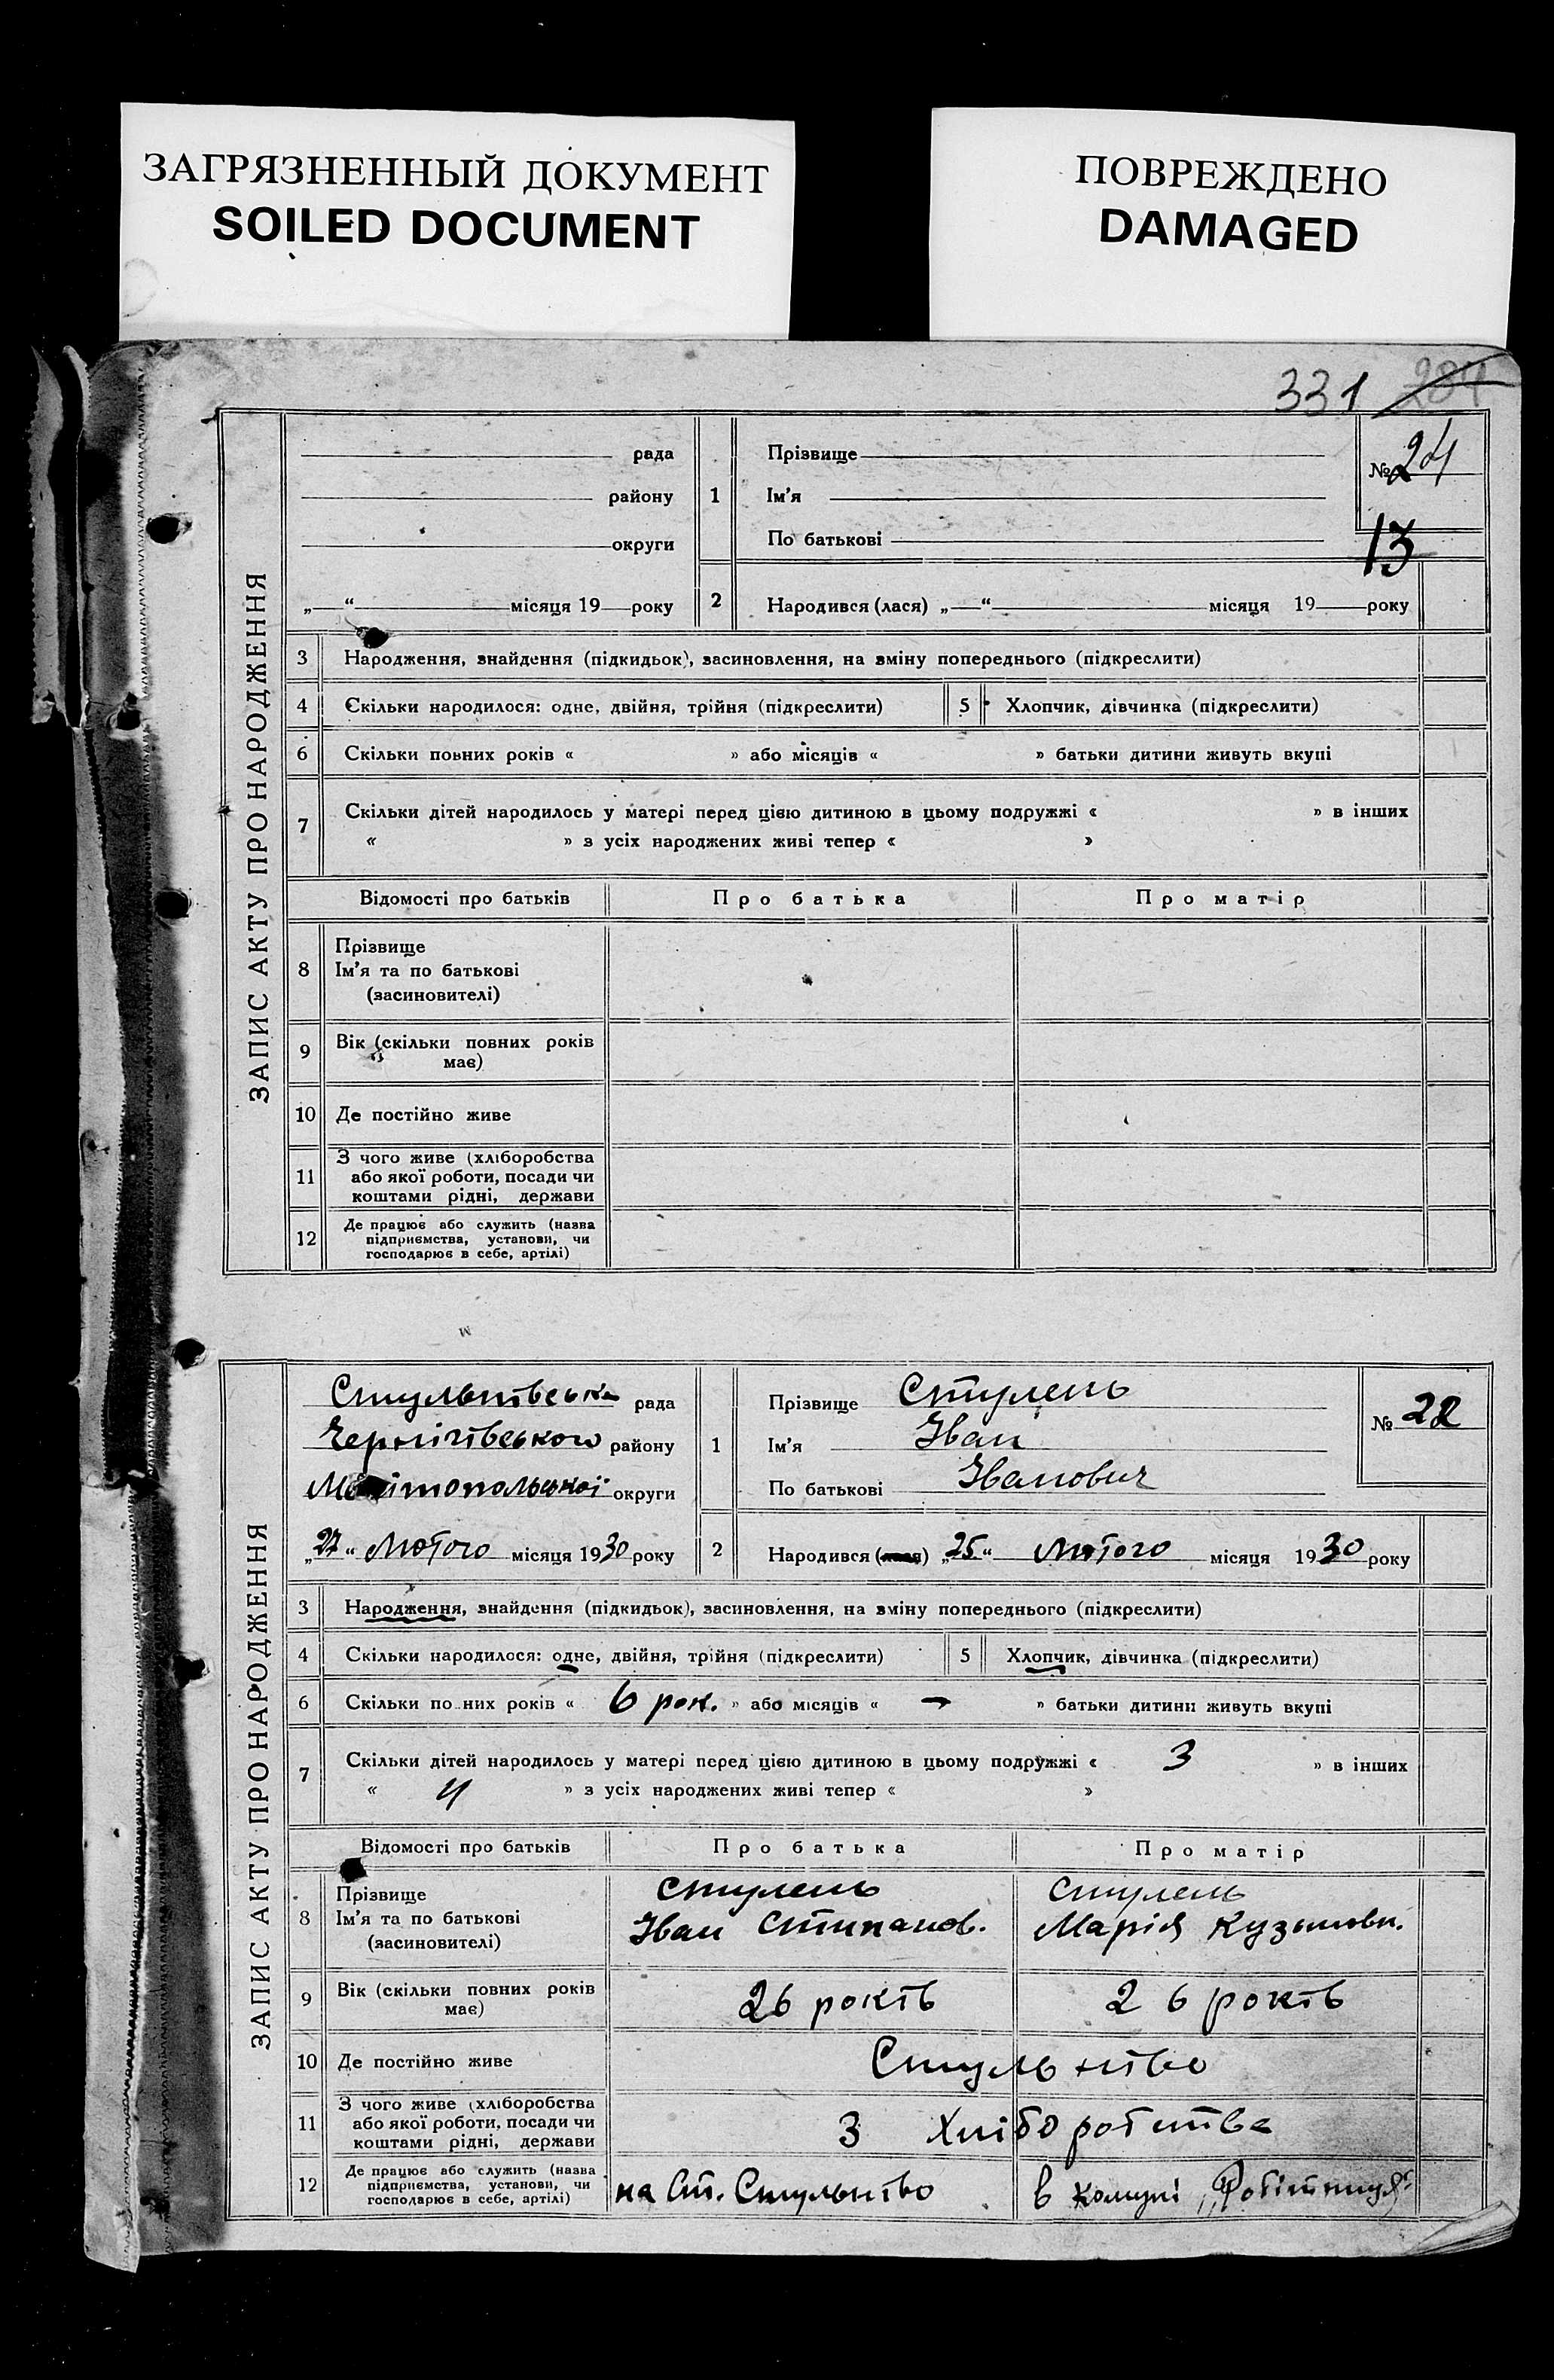 ЗАГРЯЗНЕННЫЙ ДОКУМЕНТ
SOILED DOCUMENT
ПОВРЕЖДЕНО
DAMAGED
331 284
ЗАПИС АКТУ ПРО НАРОДЖЕННЯ
рада
району
округи
„ “ місяця 19 року
1
Прізвище
Ім'я
По батькові
№ 24
13
2 Народився (лася) „ “ місяця 19 року
3 Народження, знайдення (підкидьок), засиновлення, на зміну попереднього (підкреслити)
4 Скільки народилося: одне, двійня, трійня (підкреслити) 5 Хлопчик, дівчинка (підкреслити)
6 Скільки повних років « » або місяців « » батьки дитини живуть вкупі
7 Скільки дітей народилось у матері перед цією дитиною в цьому подружжі « » в інших
« » з усіх народжених живі тепер « »
Відомості про батьків Про батька Про матір
8 Прізвище
Ім'я та по батькові
(засиновителі)
9 Вік (скільки повних років
має)
10 Де постійно живе
11 З чого живе (хліборобства
або якої роботи, посади чи
коштами рідні, держави
12 Де працює або служить (назва
підприємства, установи, чи
господарює в себе, артілі)
ЗАПИС АКТУ ПРО НАРОДЖЕННЯ
Стульнівська рада
Чернігівського району
Мелітопольської округи
„27“ Лютого місяця 1930 року
1
Прізвище Стулень
Ім'я Іван
По батькові Іванович
№ 22
2 Народився (лася) „25“ Лютого місяця 1930 року
3 Народження, знайдення (підкидьок), засиновлення, на зміну попереднього (підкреслити)
4 Скільки народилося: одне, двійня, трійня (підкреслити) 5 Хлопчик, дівчинка (підкреслити)
6 Скільки по них років « 6 рок. » або місяців « — » батьки дитини живуть вкупі
7 Скільки дітей народилось у матері перед цією дитиною в цьому подружжі « 3 » в інших
« 4 » з усіх народжених живі тепер « »
Відомості про батьків Про батька Про матір
8 Прізвище Стулень Стулень
Ім'я та по батькові Іван Стипанов. Марія Кузьмовн.
(засиновителі)
9 Вік (скільки повних років має) 26 років 26 років
10 Де постійно живе Стульнєво
11 З чого живе (хліборобства
або якої роботи, посади чи
коштами рідні, держави З Хліборобства
12 Де працює або служить (назва
підприємства, установи, чи
господарює в себе, артілі) на Ст. Стульнєво в комуні „Робітниця“